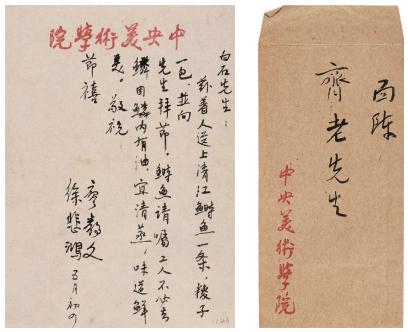 中央美術學院
白石先生：
兹着人送上清江鰣魚一条，粽子
一包，並向
先生拜節。鰣魚請囑工人不必去
鱗因鱗內有油，宜清蒸，味道鮮
美。敬祝
節禧
廖静文
徐悲鴻 五月初四
面陳
齊老先生
中央美術學院